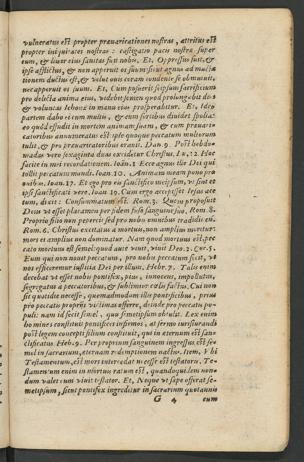 vulneratus est propter præuaricationes nostras, attritus est
propter iniquitates nostras: castigatio pacis nostræ super
eum, & liuore eius sanitas fuit nobis. Et, Oppressus fuit, &
ipse afflictus, & non aperuit os suum: sicut agnus ad macta
tionem ductus est, & velut ouis coram tondente se obmutuit,
nec aperuit os suum. Et, Cum posuerit seipsum sacrificium
pro delicto anima eius, videbit semen quod prolongabit dies
& voluntas Iehouæ in manu eius prosperabitur. Et, Ideo
partem dabo ei cum multis, & cum fortibus diuidet spolia:
eo quod effudit in mortem animam suam, & cum præuari-
catoribus annumeratus est: ipse quoque peccatum multorum
tulit, & pro præuaricatoribus orauit. Dan. 9. Post hebdo-
madas vero sexaginta duas excidetur Christus. Lu. 22. Hoc
facite in mei recordationem. Ioan. 1. Ecce agnus ille Dei qui
tollit peccatum mundi. Ioan. 10. Animam meam pono pro
ouibus. Ioan. 17. Et ego pro eis sanctifico meipsum, vt sint et
ipsi sanctificati vere. Ioan. 19. Cum ergo accepisset Iesus ace
tum, dixit: Consummatum est. Rom. 3. Quem proposuit
Deus vt esset placamen per fidem in sanguine ipsius. Rom. 8.
Proprio filio non pepercit sed pro nobis omnibus tradidit eū.
Rom. 6. Christus excitatus a mortuis, non amplius moritur:
mors ei amplius non dominatur. Nam quod mortuus est, pec
cato mortuus est semel: quod autē viuit, viuit Deo. 2. Cor. 5.
Eum qui non nouit peccatum, pro nobis peccatum fecit, vt
nos efficeremur iustitia Dei per illum. Hebr. 7. Talis enim
decebat vt esset nobis pontifex, pius, innocens, impollutus,
segregatus a peccatoribus, & sublimior cœlis factus. Cui non
sit quotidie necesse, quemadmodum illis pontificibus, prius
pro peccatis propriis victimas offerre, deinde pro peccatis po-
puli: nam id fecit semel, quum semetipsum obtulit. Lex enim
homines constituit pontifices infirmos, at sermo iurisiurandi
post legem concepti filium constituit, qui in æternum est san-
ctificatus. Heb. 9. Per proprium sanguinem ingressus est se-
mel in sacrarium, æternam redemptionem nactus. Item, Vbi
Testamentum, est mors intercedat necesse est testatoris. Te-
stamentum enim in mortuis ratum est, quandoquidem non-
dum valet cum viuit testator. Et, Neque vt sæpe offerat se-
metipsum, sicut pontifex ingreditur in sacrarium quotannis
G 4 cum